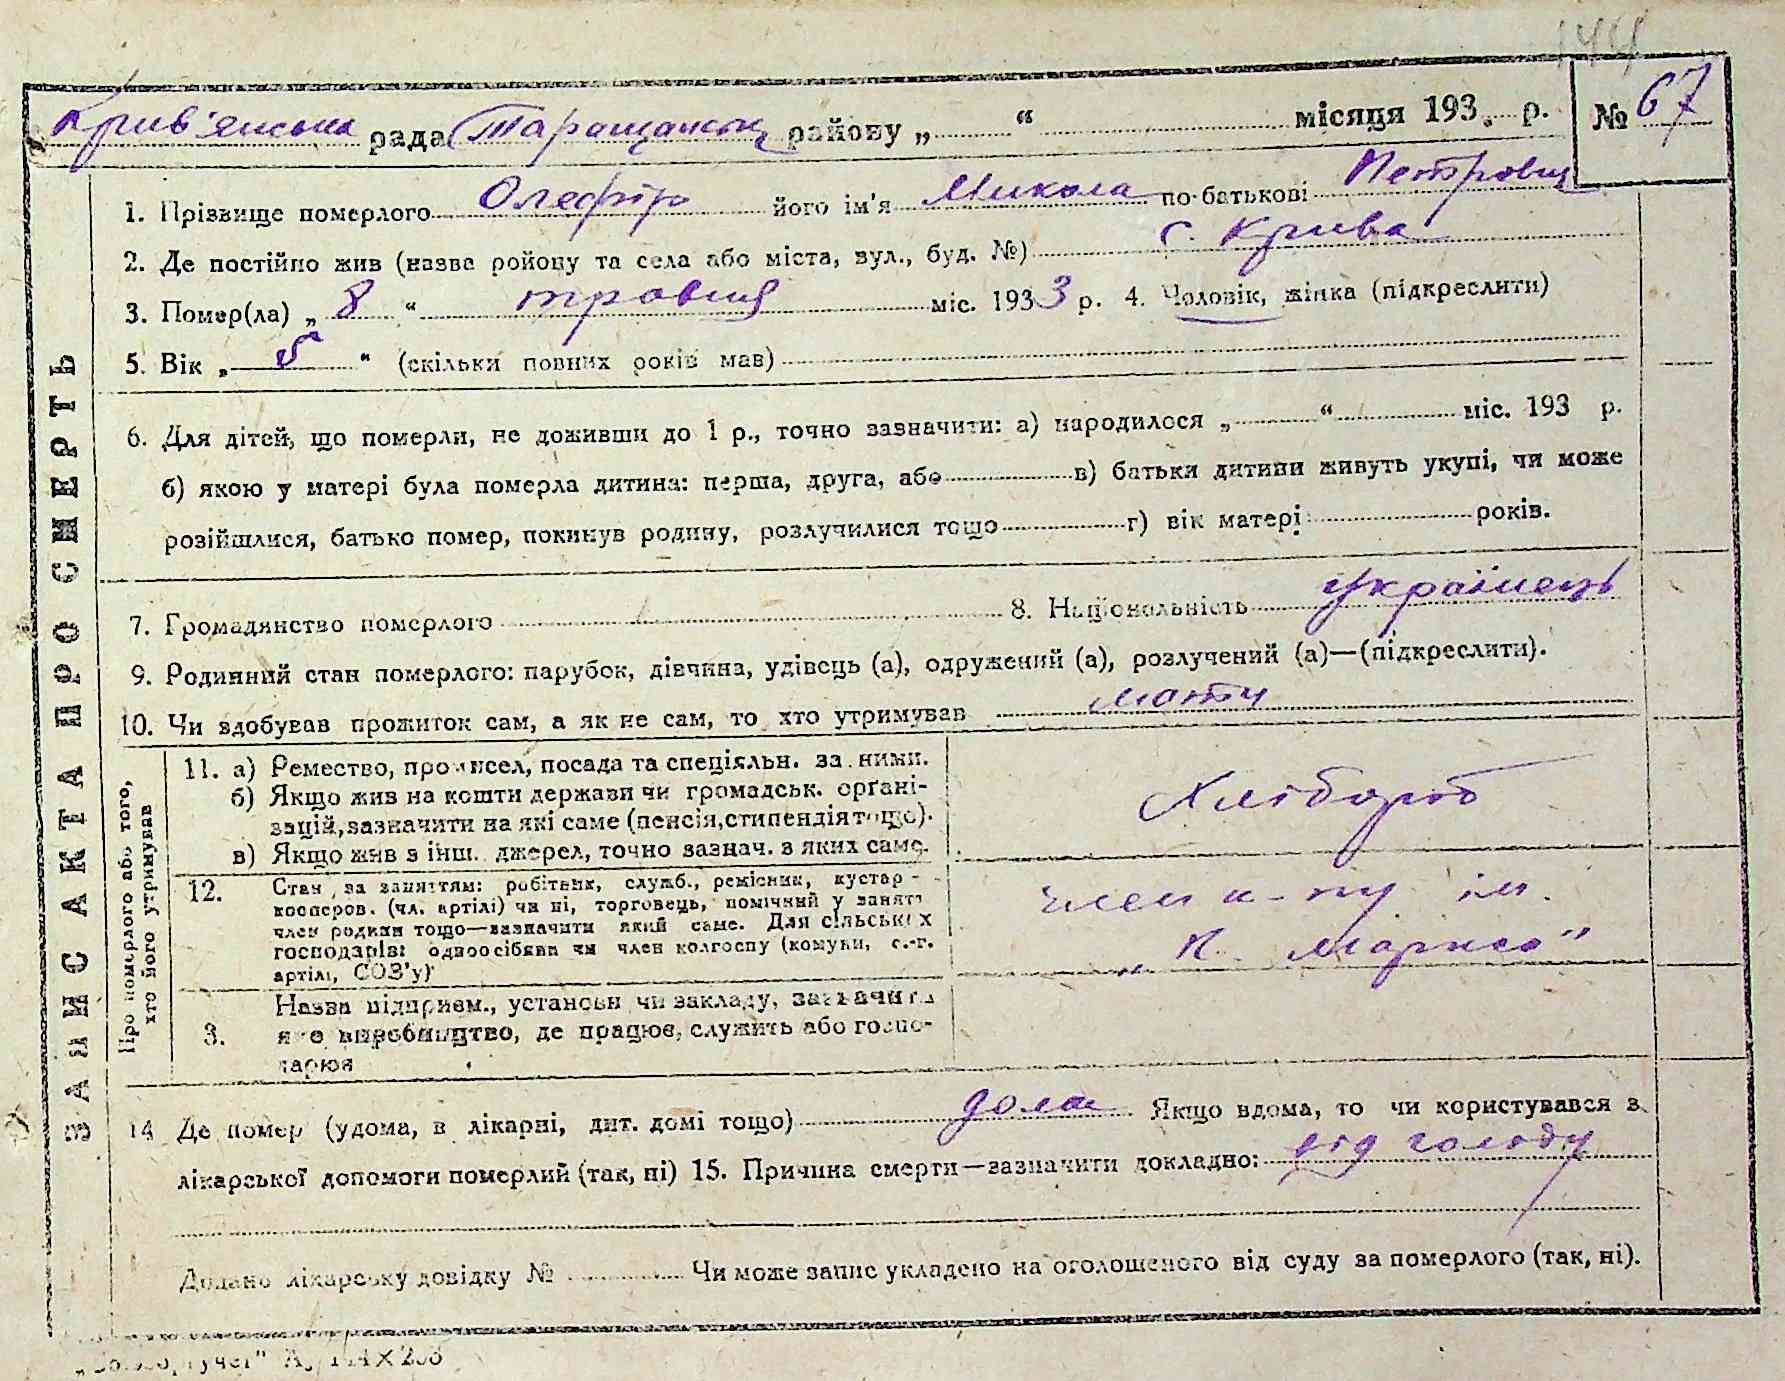 144
Крив'янська рада Таращанськ району „ “ місяця 193 р. № 67
ЗАПИС АКТА ПРО СМЕРТЬ
1. Прізвище померлого Олефір його ім'я Микола по-батькові Петрович
2. Де постійно жив (назва ройону та села або міста, вул., буд. №) с. Крива
3. Помер(ла) „ 8 “ травня міс. 1933 р. 4. Чоловік, жінка (підкреслити)
5. Вік „ 5 “ (скільки повних років мав)
6. Для дітей, що померли, не доживши до 1 р., точно зазначити: а) народилося „ “ міс. 193 р.
б) якою у матері була померла дитина: перша, друга, або в) батьки дитини живуть укупі, чи може
розійшлися, батько помер, покинув родину, розлучилися тощо г) вік матері років.
7. Громадянство померлого 8. Національність українець
9. Родинний стан померлого: парубок, дівчина, удівець (а), одружений (а), розлучений (а)—(підкреслити).
10. Чи здобував прожиток сам, а як не сам, то хто утримував мати
Про померлого або того,
хто його утримував
11. а) Ремество, промисел, посада та спеціяльн. за ними.
б) Якщо жив на кошти держави чи громадськ. орґані-
зацій, зазначити на які саме (пенсія, стипендія тощо).
в) Якщо жив з інш. джерел, точно зазнач. з яких саме.
Хлібороб
12. Стан за заняттям: робітник, служб., ремісник, кустар -
кооперов. (чл. артілі) чи ні, торговець, помічний у занятт
член родини тощо—зазначити який саме. Для сільських
господарів: одноосібник чи член колгоспу (комуни, с.-г.
артілі, СОЗ'у)
член к-пу ім.
„К. Маркса"
3. Назва підприєм., установи чи закладу, зазначити
яке виробництво, де працює, служить або госпо-
дарює
14 Де помер (удома, в лікарні, дит. домі тощо) дома Якщо вдома, то чи користувався з
лікарської допомоги померлий (так, ні) 15. Причина смерти—зазначити докладно: від голоду
Додано лікарську довідку № Чи може запис укладено на оголошеного від суду за померлого (так, ні).